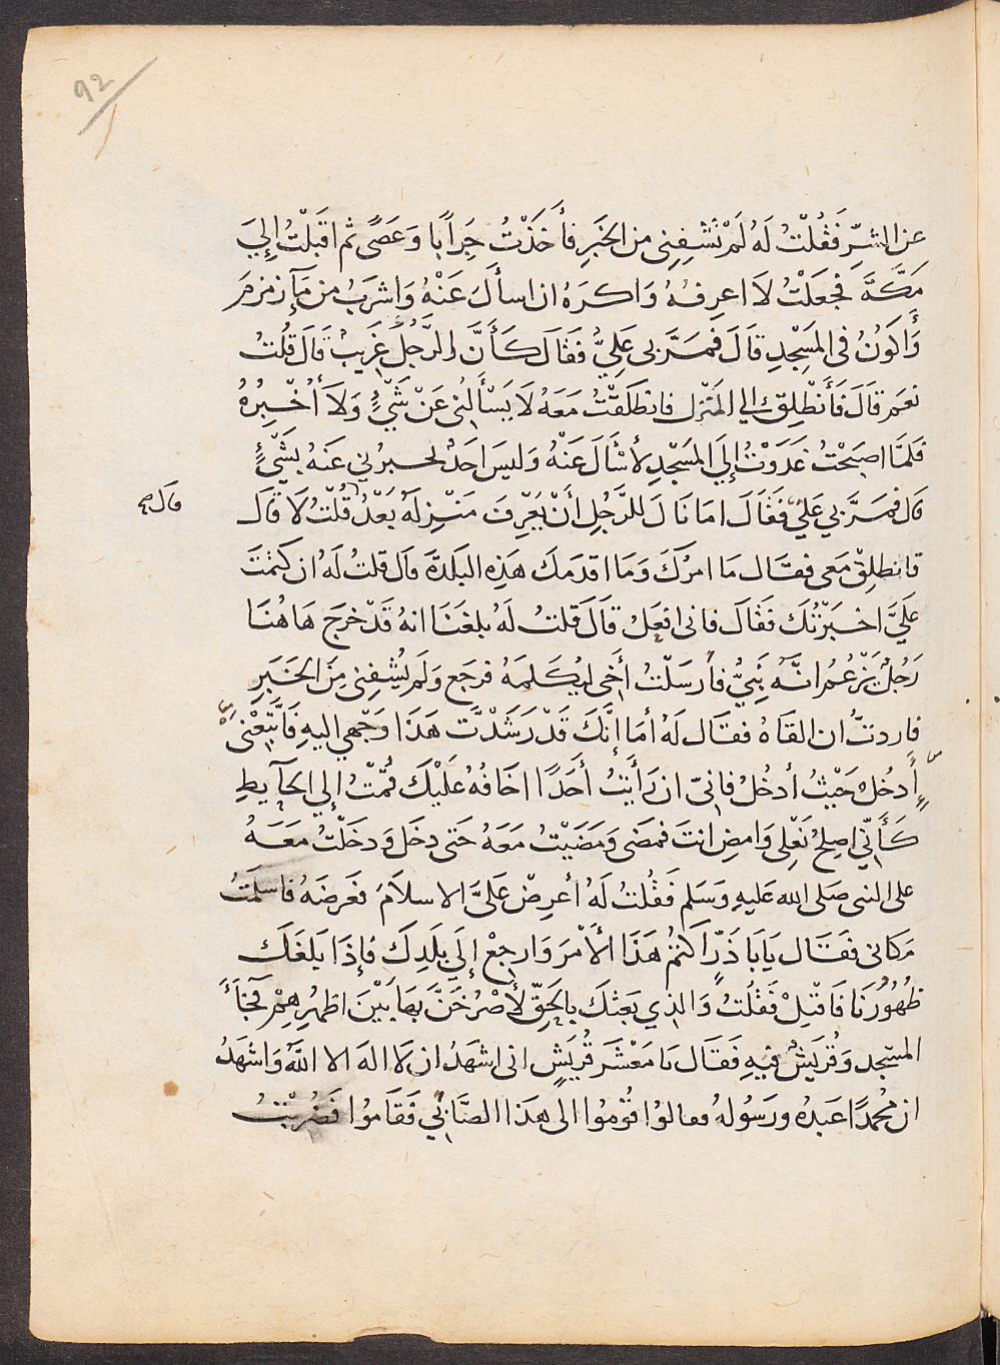 92
عن الشرِّ فَقُلْتُ لَهُ لَمْ تَشْفِنِى من الخَبَرِ فأَخَذْتُ جِرَابًا وَعَصًى ثم اقبَلْتُ إِلىَ
مَكَّةَ فجعَلْتُ لَا اعرِفُهُ وَاكرَهُ ان اسأَلَ عَنْهُ وَاشرَبُ من مَآءِ زمزمَ
وَأَكُونُ فى المَسْجِدِ قَالَ فمَرَّ بى عَلِيٌّ فقَالَ كَأَنَّ الرَّجُلَ غَرِيبٌ قَالَ قُلتُ
نعم قَالَ فَأنْطلِقْ إلى المَنْزل فانطلَقْتُ مَعَهُ لَا يَسْأَلُنِى عَنْ شَيْءٍ وَلَا أُخْبِرُهُ
فلمَّا اصبَحْتُ غَدَوْتُ إِلَى المَسْجِدِ لأَسْأَلَ عَنْهُ وَليسَ احَدٌ يخبرُنى عَنهُ بِشَيْءٍ
قال فمَرَّ بِي عَليٌّ فَقَالَ امَا نَالَ للرَّجُلِ أَنْ يَعْرِفَ مَنْزِلَهُ بَعْدُ قُلْتُ لَا قَالَ
قال صح
فانطلِقْ مَعى فقَال مَا امرُكَ وَمَا اقدَمَكَ هَذِهِ البَلدَةَ قال قلتُ لَهُ ان كتمْتَ
عَلَيَّ اخبَرْتُكَ فَقَالَ فانى افعَلُ قَالَ قلتُ لَهُ بلغَنَا انهُ قَدْ خرَجَ هَاهُنَا
رَجُلٌ يَزْعُمُ انَّهُ نَبِيٌّ فأَرسَلْتُ أَخى ليُكَلمَهُ فرجَع وَلَم يُشْفِنى مِنَ الخَبَرِ
فاردتُ ان القَاهُ فقَال لَهُ أمَا إنَّكَ قَدْ رَشَدْتَ هَذَا وَجْهي اليهِ فَاتَّبِعْنى
أُدخُلْ حَيْثُ أدخُلُ فانىّ ان رَأَيتُ أَحَدًا اخَافُهُ عَلَيْكَ قُمْتُ إلى الحآيطِ
كَأَنِّي اصلِحُ نَعْلِى وَامضِ انتَ فمضَى وَمَضَيْتُ مَعَهُ حَتى دخَلَ وَدخَلْتُ مَعَهُ
على النبى صَلى الله عَليهِ وَسَلم فَقُلتُ لَهُ أعرِضْ عَلىَّ الاسلَامَ فعَرضَهُ فاسلَمْتُ
مَكانى فقَال يَابَا ذَرٍّ اكتُمْ هَذَا الأَمْرَ وَارجِعْ إِلَى بلَدِكَ فإِذَا بَلغَكَ
ظُهُورُنَا فَاقْبِلْ فَقُلتُ وَالذِي بَعَثكَ بِالحَقِّ لأَصْرُخَنَّ بهَا بَيْنَ اظهُرِهِمْ فجَاءَ
المسْجِد وَقُرَيشٌ فيهِ فَقَال يَا مَعْشَرَ قُرَيشٍ انى اشهَدُ ان لَا الهَ الا اللهُ وَاشهَدُ
ان مُحمدًا عَبدُه ورَسُولهُ فقالوا قُومُوا الى هَذَا الصَّابئِ فَقَامُوا فَضُرِبْتُ